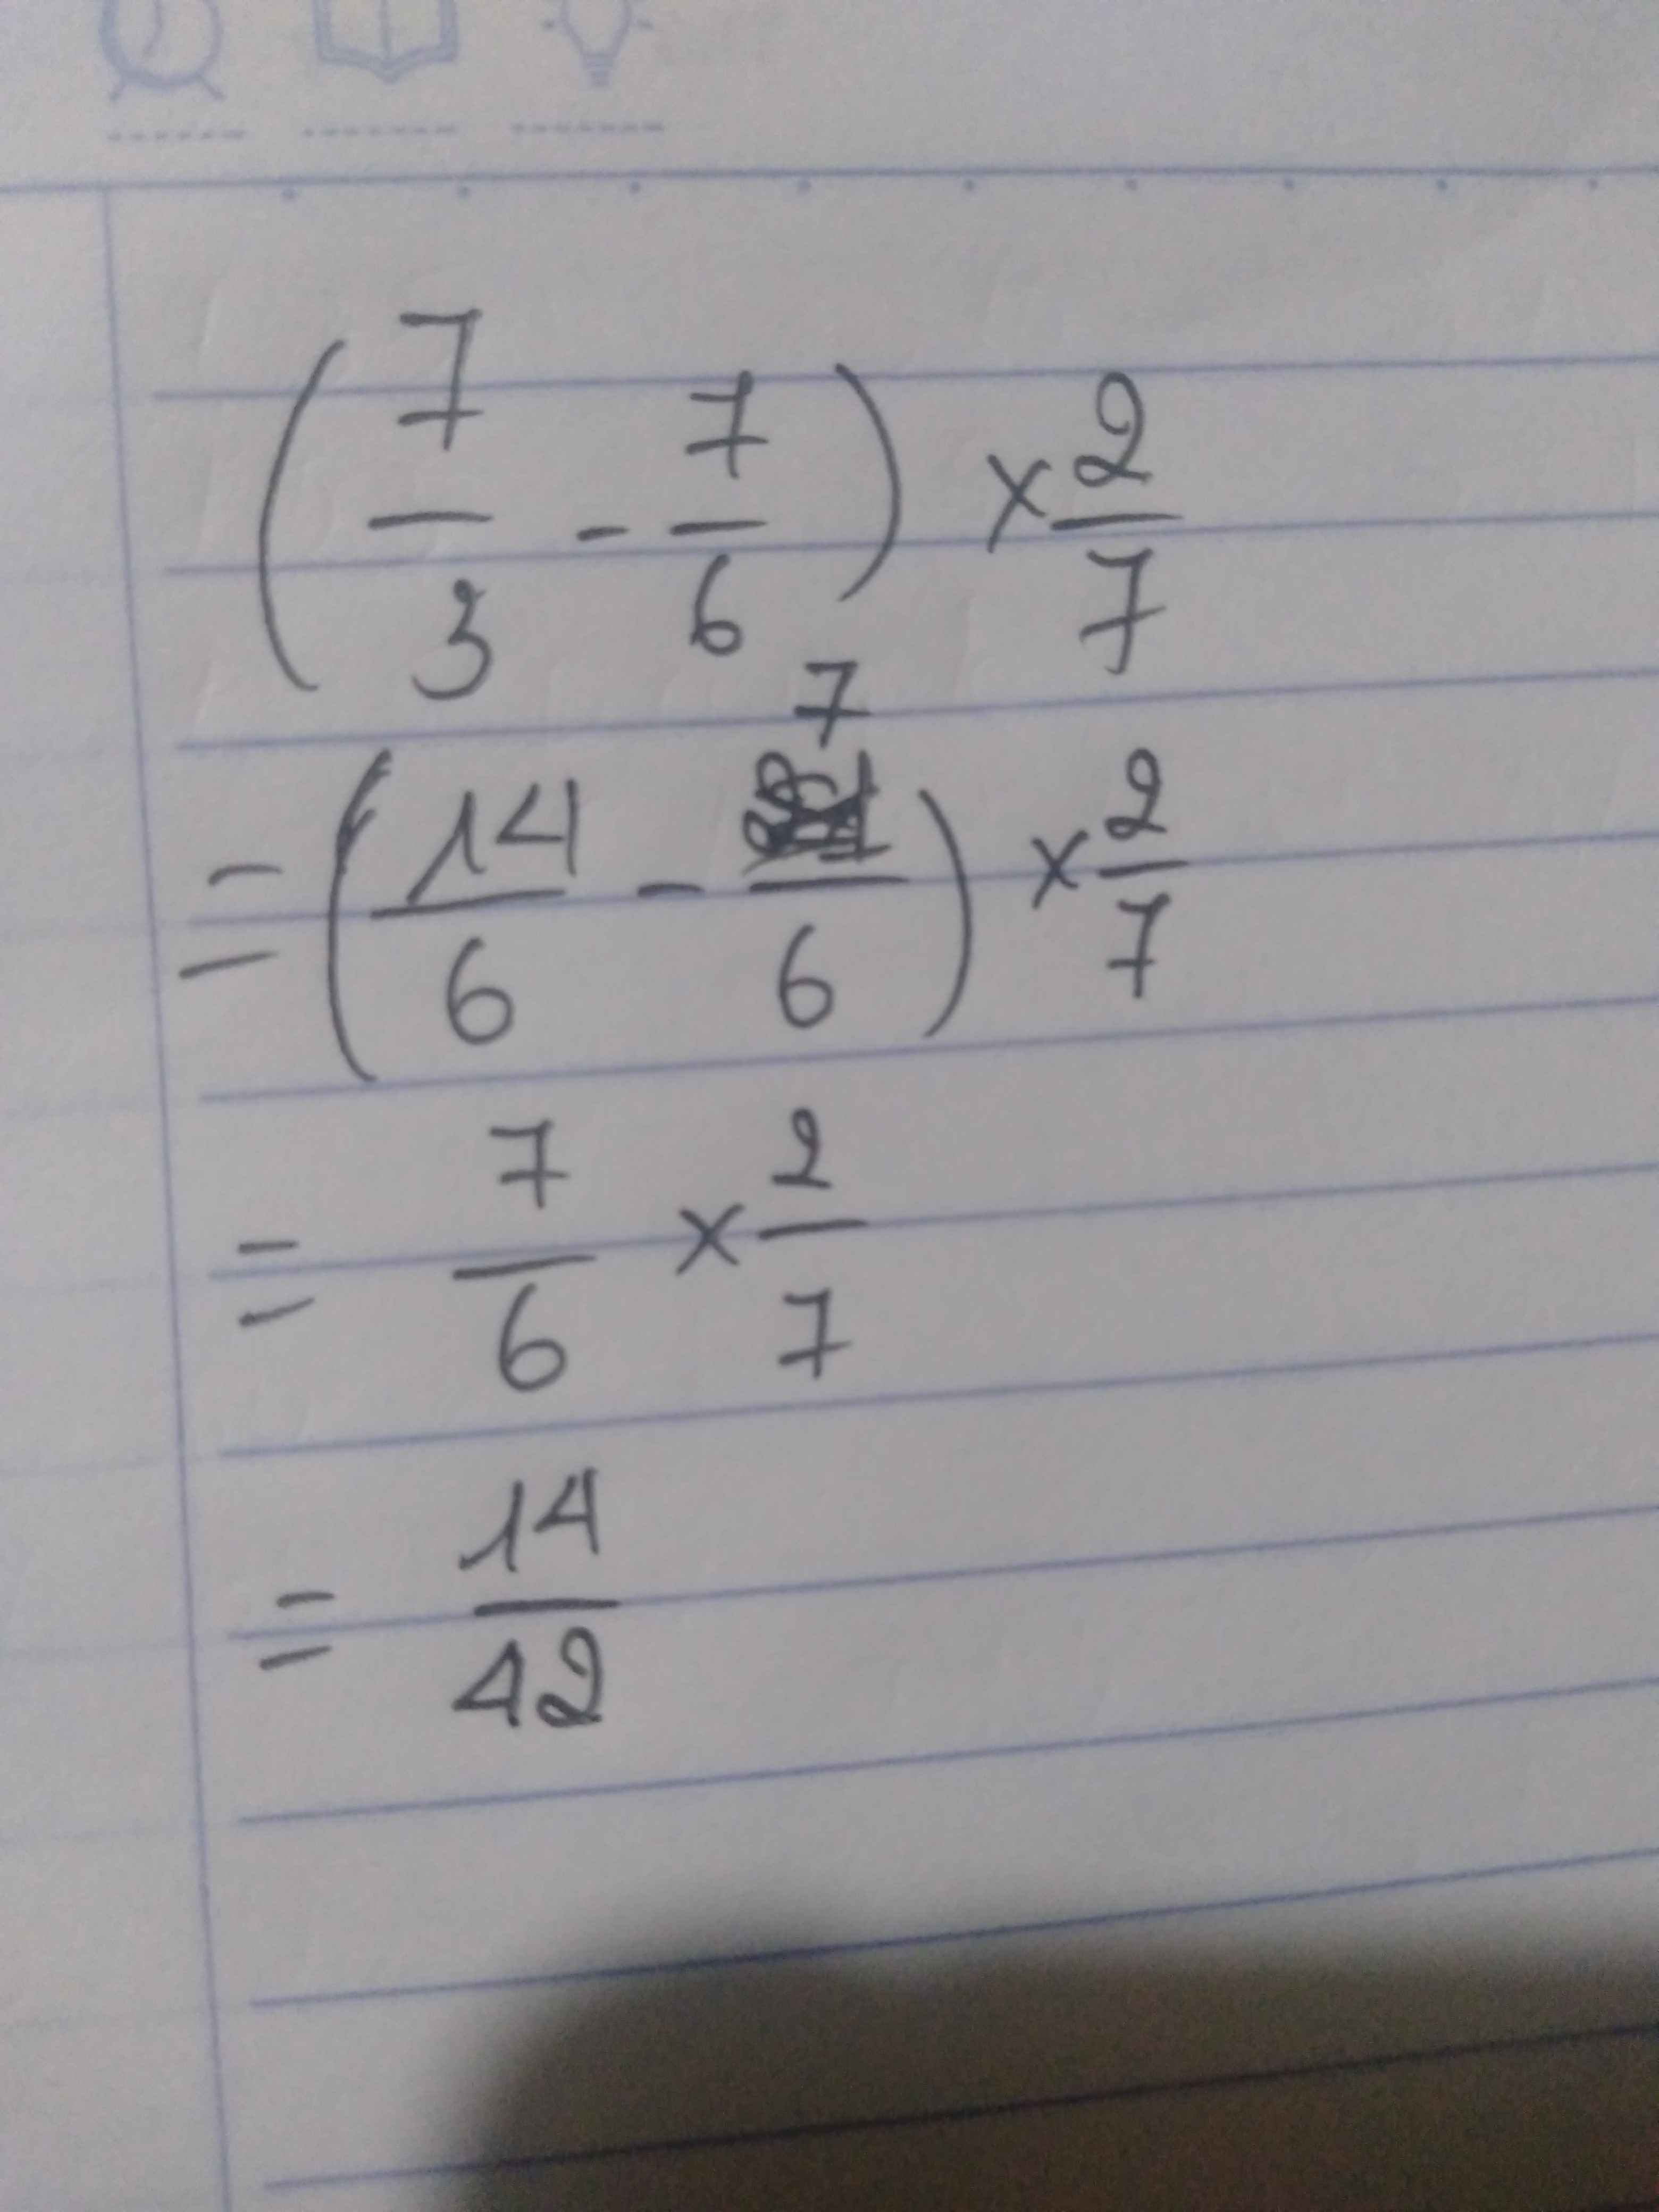 (7/3 - 7/6) × 2/7
= (14/6 - 7/6) × 2/7
= 7/6 × 2/7
= 14/42